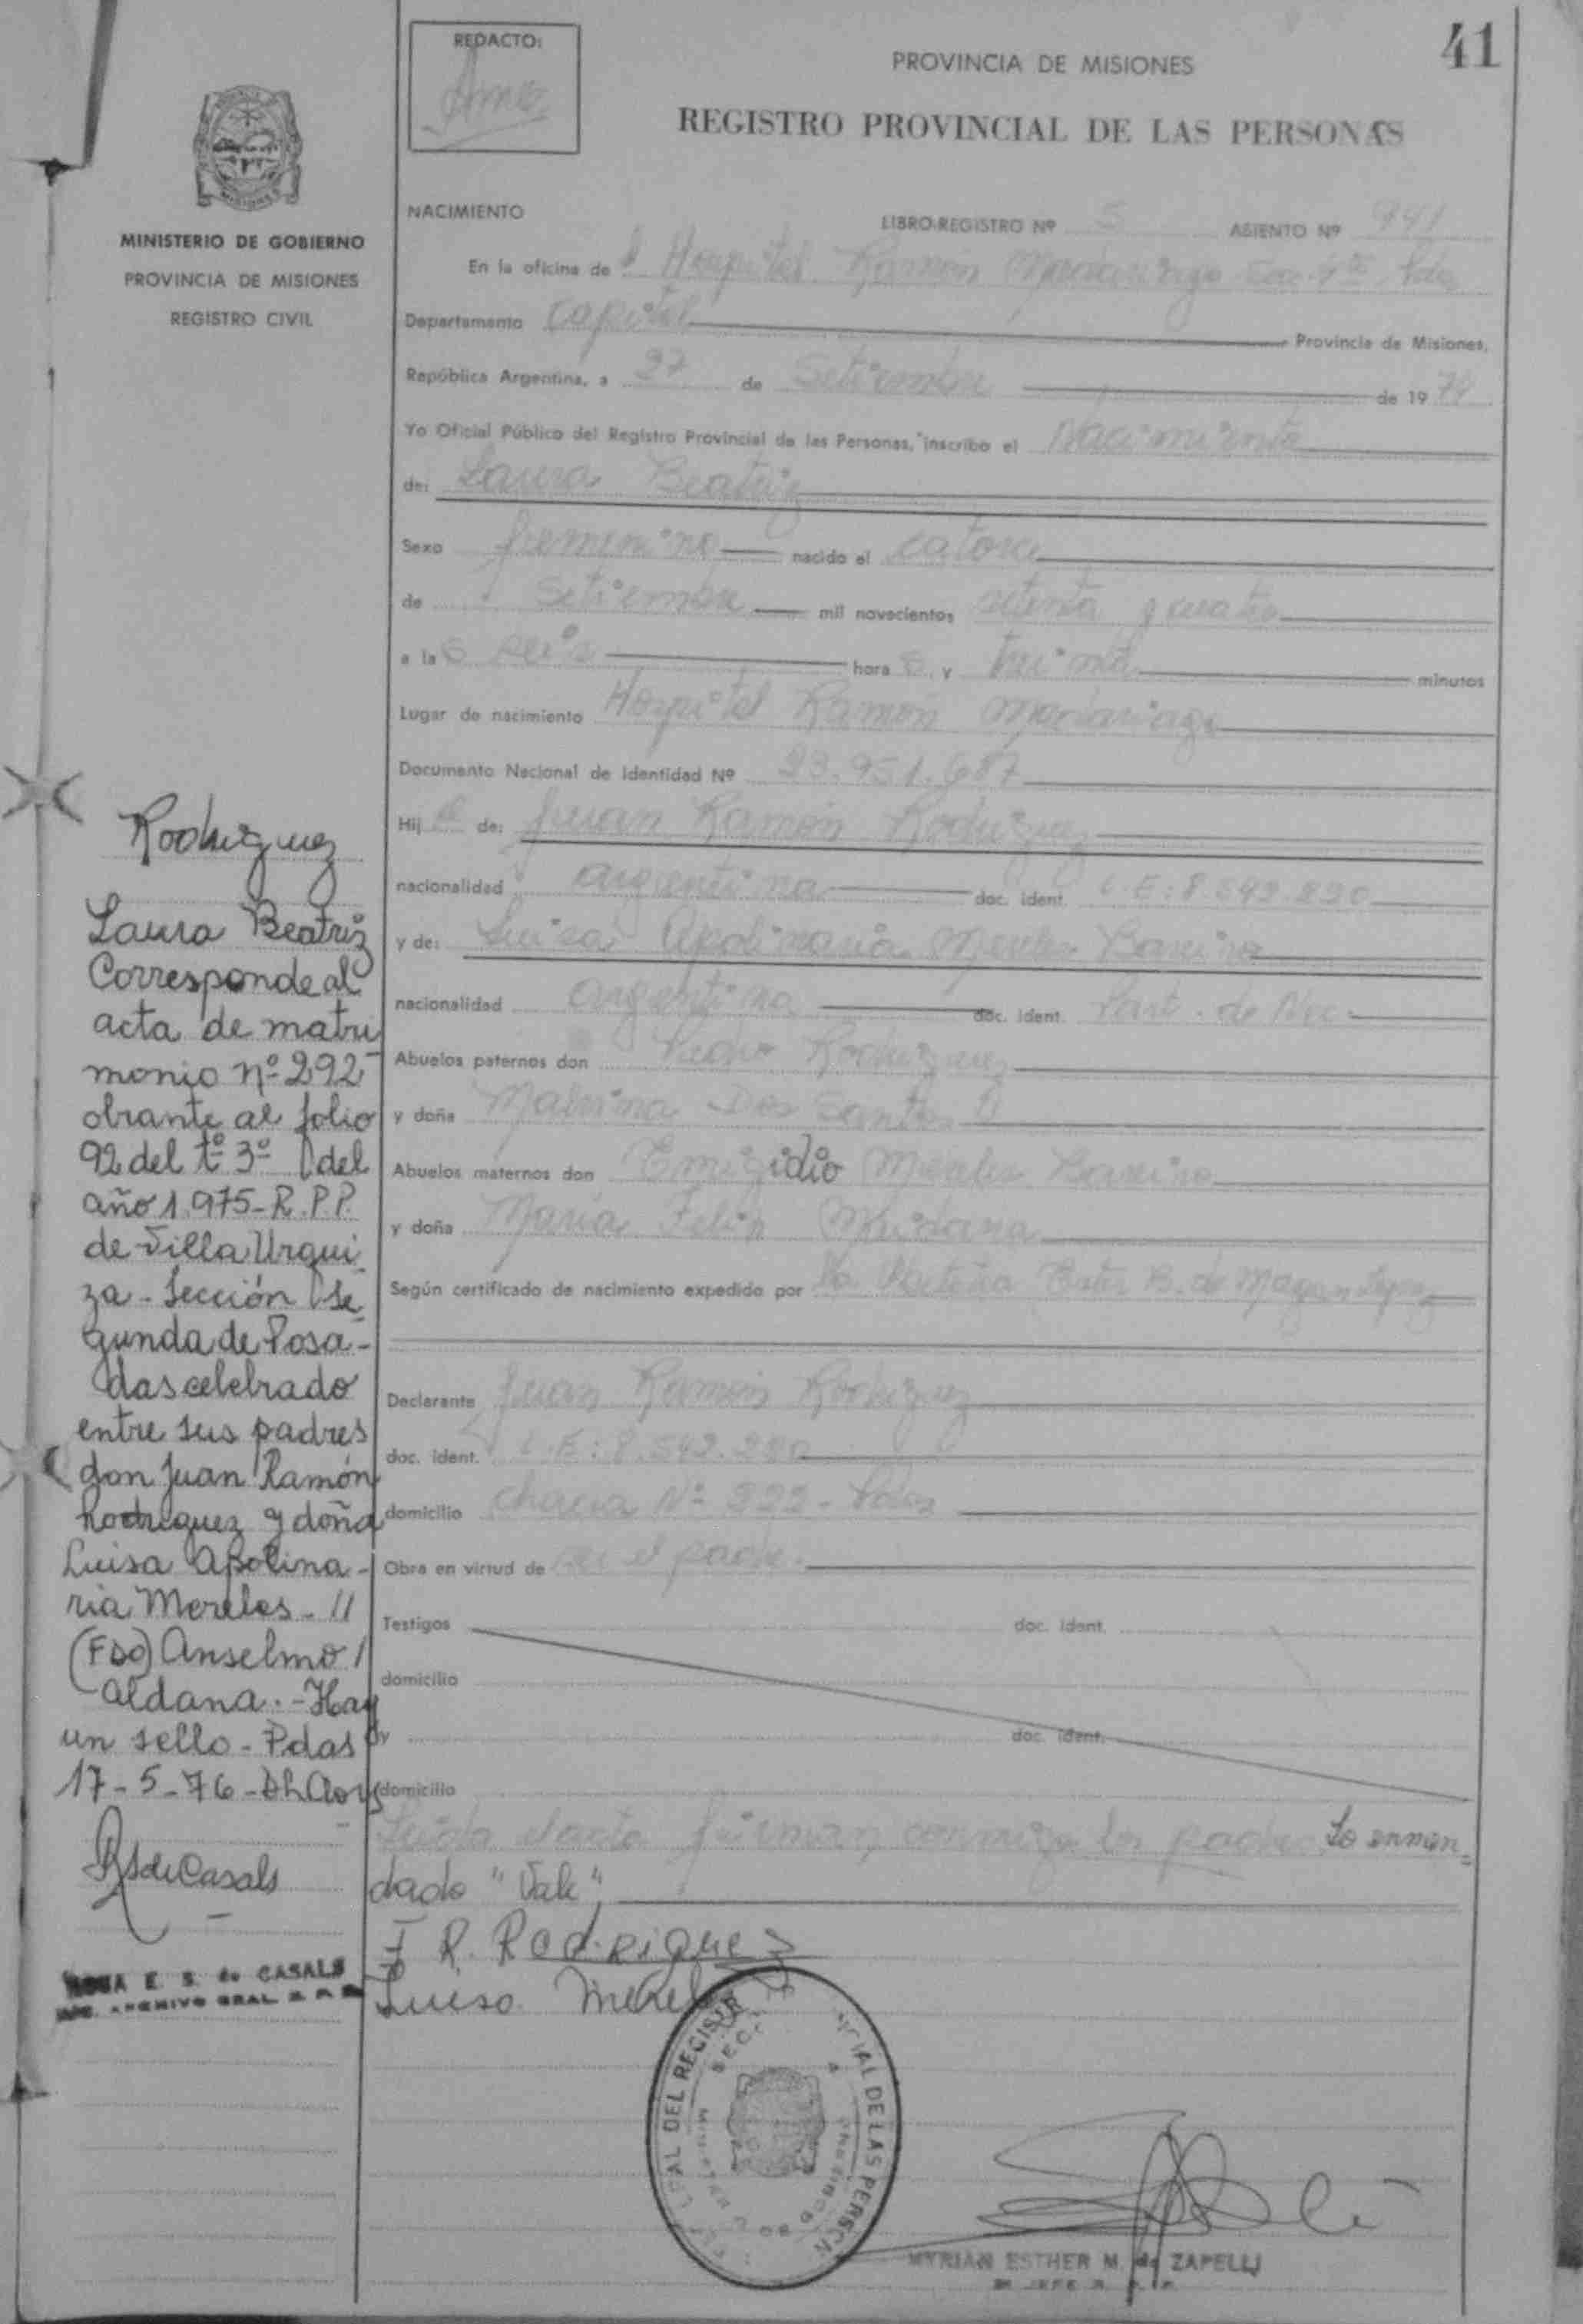 41
REDACTO:
PROVINCIA DE MISIONES
REGISTRO PROVINCIAL DE LAS PERSONAS
MINISTERIO DE GOBIERNO
PROVINCIA DE MISIONES
REGISTRO CIVIL
NACIMIENTO
LIBRO-REGISTRO Nº 5 ASIENTO Nº 941
En la oficina de l Hospital Ramón Madariaga
Departamento Capital Provincia de Misiones,
República Argentina, a 27 de Setiembre de 1974
Yo Oficial Público del Registro Provincial de las Personas, inscribo el Nacimiento
de: Laura Beatriz
Sexo femenino nacido el catorce
de Setiembre mil novecientos setenta y cuatro
a la s seis hora s y treinta minutos
Lugar de nacimiento Hospital Ramón Madariaga
Documento Nacional de Identidad Nº 23.951.687
Hij a de: Juan Ramón Rodriguez
nacionalidad argentina doc. ident. L.E: 8.542.290
y de: Luisa Apolinaria Mereles Barreiro
nacionalidad argentina doc. ident. Part. de Nac.
Abuelos paternos don Pedro Rodriguez
y doña Malvina Dos Santos
Abuelos maternos don Emigidio Mereles Barreiro
y doña María Felix
Según certificado de nacimiento expedido por la Partera Ester B. de
Declarante Juan Ramón Rodriguez
doc. ident. L.E: 8.542.290
domicilio chacra Nº 222 - Pdas
Obra en virtud de ser el padre.
Testigos doc. ident.
domicilio
y doc. ident.
domicilio
Leida el acta firman conmigo los padres Lo enmen=
dado "Vale",
J R. Rodriguez
Luisa Merel
Rodriguez
Laura Beatriz
Corresponde al
acta de matri
monio nº 292
obrante al folio
92 del tº 3º del
año 1.975-R.P.P.
de Villa Urqui
za - Sección Se
gunda de Posa-
das celebrado
entre sus padres
don Juan Ramón
Rodriguez y doña
Luisa Apolina-
ria Mereles - //
(FDO) Anselmo /
Aldana. - Hay
un sello - Pdas
17-5-76-
RSdeCasals
ROSA E. S. de CASALS
ARCHIVO GRAL. R. P. P.
DEL REGISTR
CIAL DE LAS PERSON
SECC.
MYRIAN ESTHER M. de ZAPELLI
JEFE R. P. P.